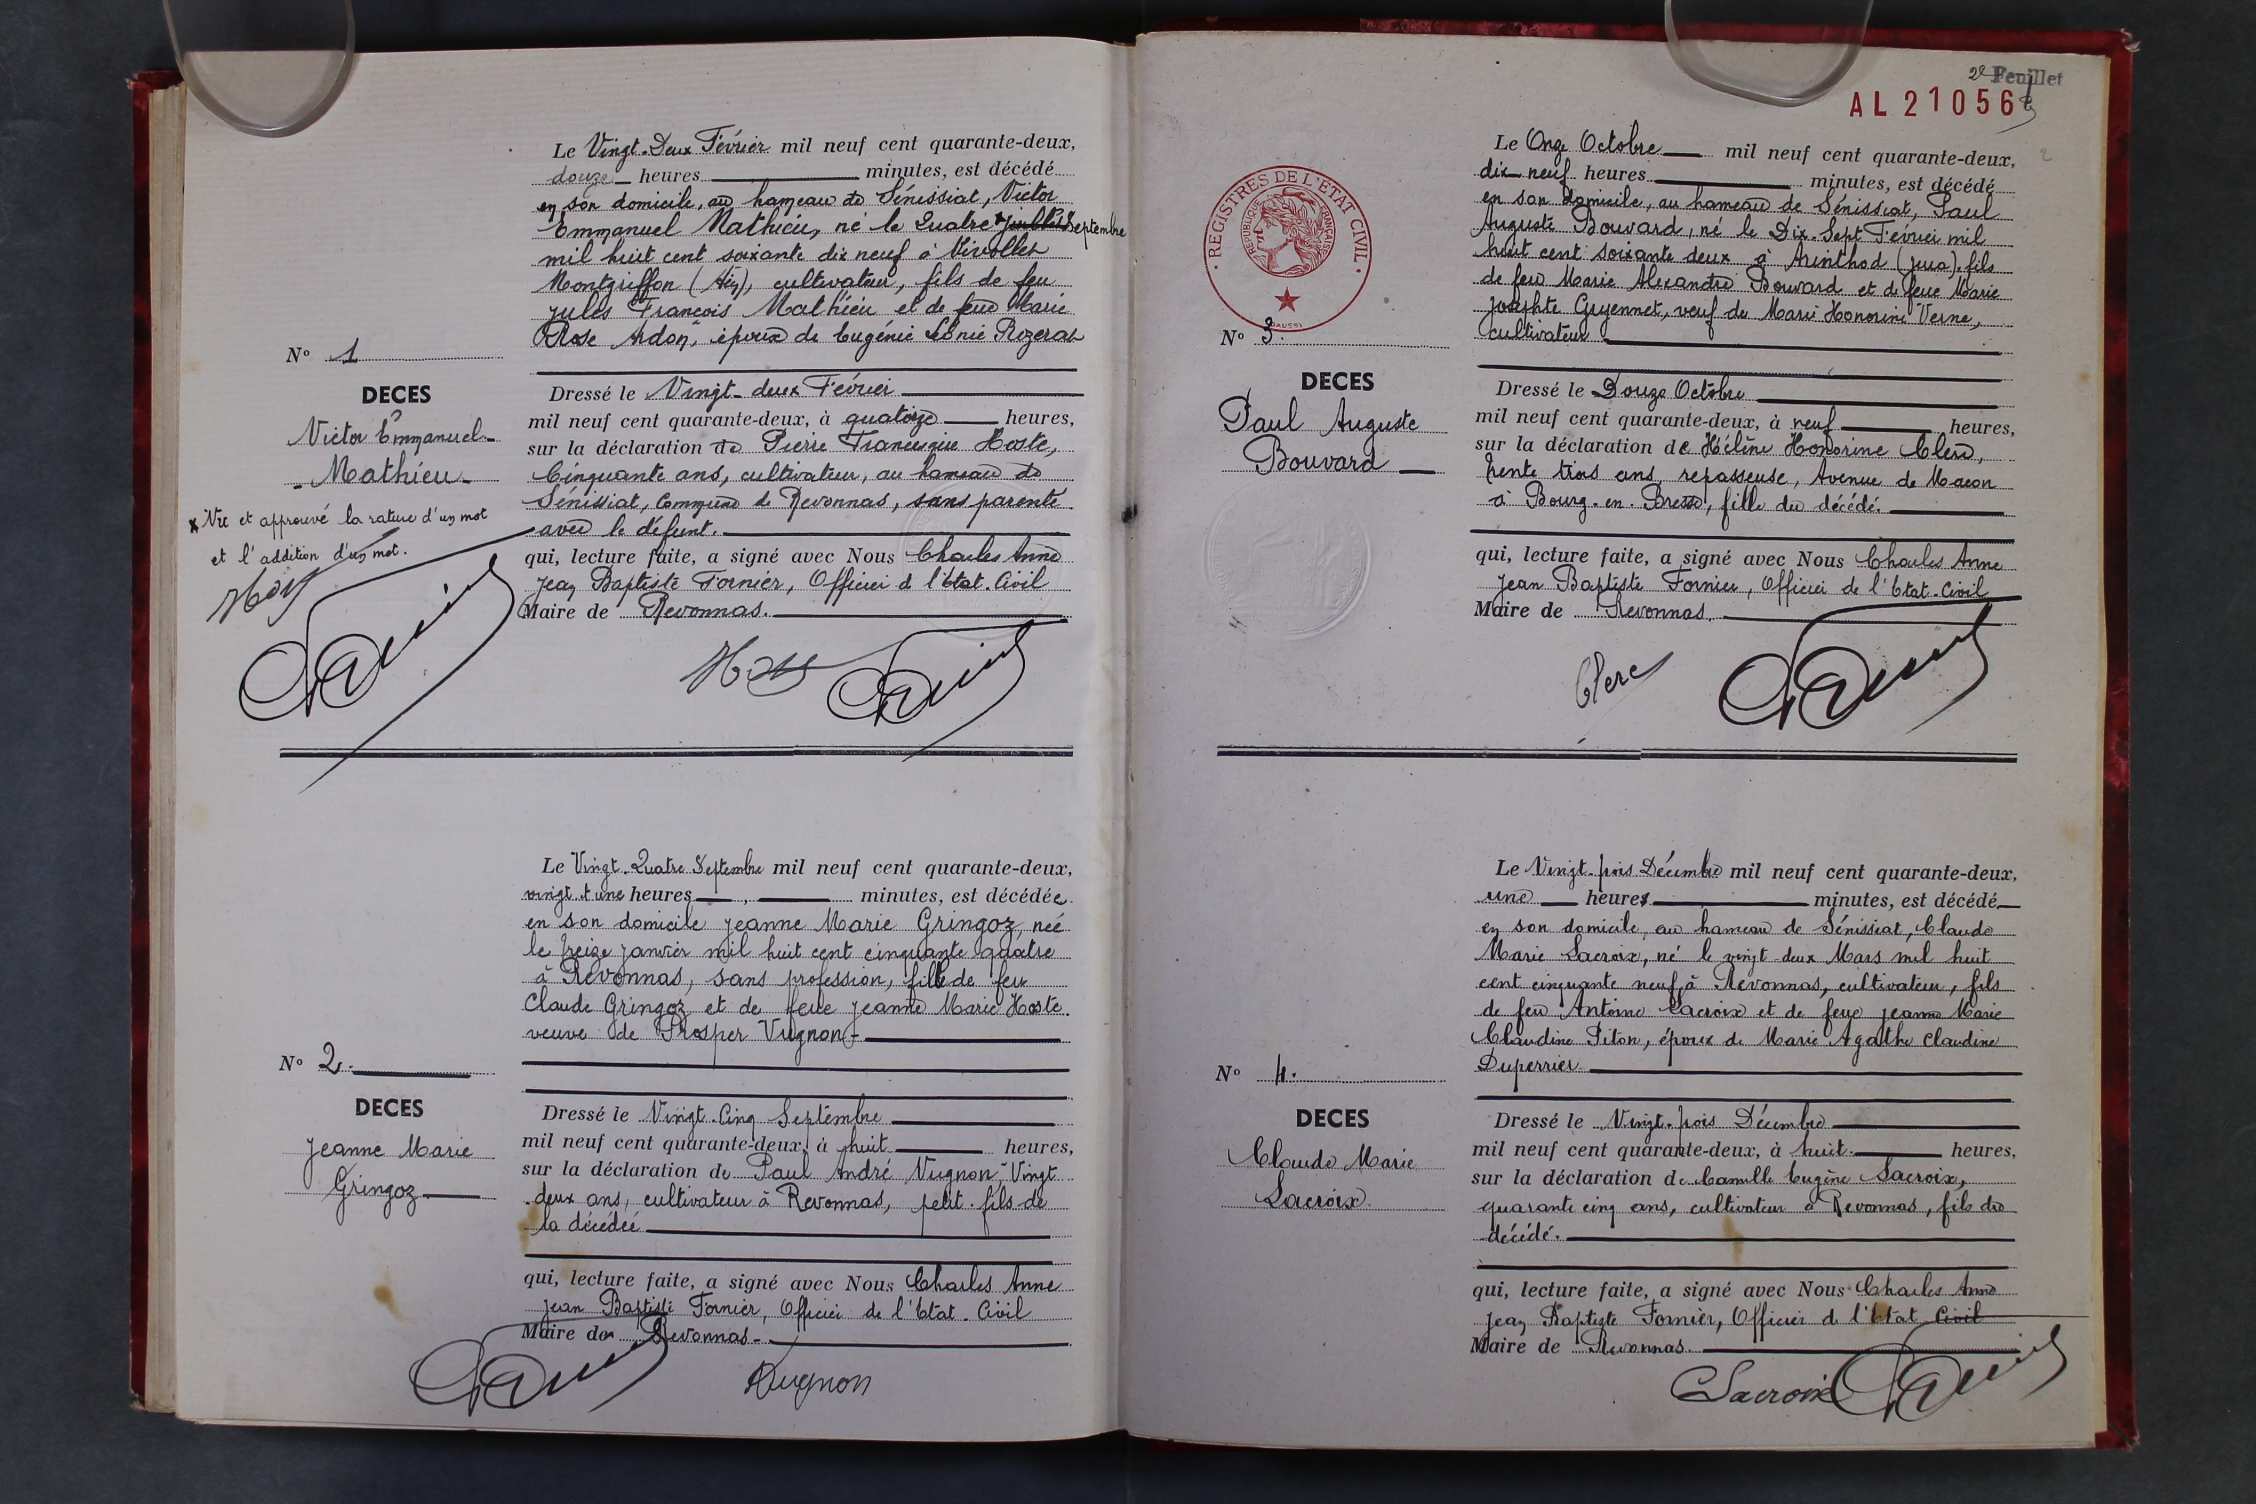 Le Vingt-Deux Février mil neuf cent quarante-deux,
douze heures minutes, est décédé
en son domicile, au hameau de Sénissiat, Victor
Emmanuel Mathieu, né le Quatre x Septembre
mil huit cent soixante dix neuf à
Montgriffon (Ain), cultivateur, fils de feu
Jules François Mathieu et de feue Marie
Rose Ardon, époux de Eugénie Léonie Rozerat
N° 1
DECES
Victor Emmanuel
Mathieu
x Vu et approuvé la rature d'un mot
et l'addition d'un mot.
Dressé le Vingt-deux Février
mil neuf cent quarante-deux, à quatorze heures,
sur la déclaration de Pierre Francisque Hoste,
Cinquante ans, cultivateur, au hameau de
Sénissiat, Commune de Revonnas, sans parenté
avec le défunt.
qui, lecture faite, a signé avec Nous Charles Anne
Jean Baptiste Fornier, Officier de l'Etat-Civil
Maire de Revonnas.
Le Vingt-Quatre Septembre mil neuf cent quarante-deux,
vingt et une heures, minutes, est décédée
en son domicile Jeanne Marie Gringoz, née
le treize janvier mil huit cent cinquante quatre
à Revonnas, sans profession, fille de feu
Claude Gringoz et de feue Jeanne Marie Hoste
veuve de Prosper Vugnon
N° 2.
DECES
Jeanne Marie
Gringoz
Dressé le Vingt-Cinq Septembre
mil neuf cent quarante-deux, à huit heures,
sur la déclaration de Paul André Vugnon, Vingt
deux ans, cultivateur à Revonnas, petit-fils de
la décédée
qui, lecture faite, a signé avec Nous Charles Anne
Jean Baptiste Fornier, Officier de l'Etat-Civil
Maire de Revonnas
Vugnon
2e Feuillet
AL 21056
2
REGISTRES DE L'ETAT CIVIL
REPUBLIQUE FRANÇAISE
DAUSSI
Le Onze Octobre mil neuf cent quarante-deux,
dix-neuf heures minutes, est décédé
en son domicile, au hameau de Sénissiat, Paul
Auguste Bouvard, né le Dix-Sept Février mil
huit cent soixante deux à Arinthod (Jura), fils
de feu Marie Alexandre Bouvard et de feue Marie
Josephte Gruyennet, veuf de Marie Honorine Verne,
Cultivateur
N° 3.
DECES
Paul Auguste
Bouvard
Dressé le Douze Octobre
mil neuf cent quarante-deux, à neuf heures,
sur la déclaration de Hélène Honorine Clerc,
trente trois ans, repasseuse, Avenue de Macon
à Bourg-en-Bresse, fille du décédé.
qui, lecture faite, a signé avec Nous Charles Anne
Jean Baptiste Fornier, Officier de l'Etat-Civil
Maire de Revonnas.
Clerc
Le Vingt-trois Décembre mil neuf cent quarante-deux,
une heures minutes, est décédé
en son domicile, au hameau de Sénissiat, Claude
Marie Lacroix, né le vingt-deux Mars mil huit
cent cinquante neuf, à Revonnas, cultivateur, fils
de feu Antoine Lacroix et de feue Jeanne Marie
Claudine Piton, époux de Marie Agathe Claudine
Duperrier
N° 4.
DECES
Claude Marie
Lacroix
Dressé le Vingt-trois Décembre
mil neuf cent quarante-deux, à huit heures,
sur la déclaration de Camille Eugène Lacroix,
quarante cinq ans, cultivateur à Revonnas, fils du
décédé.
qui, lecture faite, a signé avec Nous Charles Anne
Jean Baptiste Fornier, Officier de l'Etat Civil
Maire de Revonnas.
Lacroix